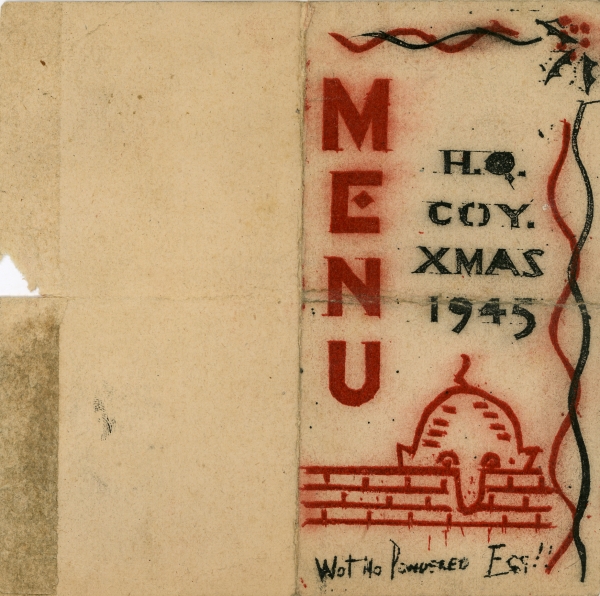 MENU
H.Q.
COY.
XMAS
1945
Wot No Powdered Egg!!